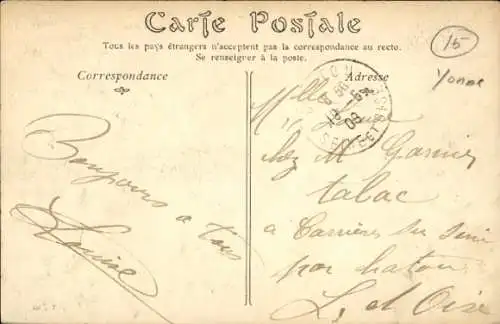 Carte Postale
Tous les pays étrangers n'acceptent pas la correspondance au recto.
Se renseigner à la poste.
Correspondance
Adresse
15
Yonne
Bonjours
a tous
Louise
Mlle
chez M Garnier
tabac
a Carrières sur Seine
par Chatou
S. et Oise